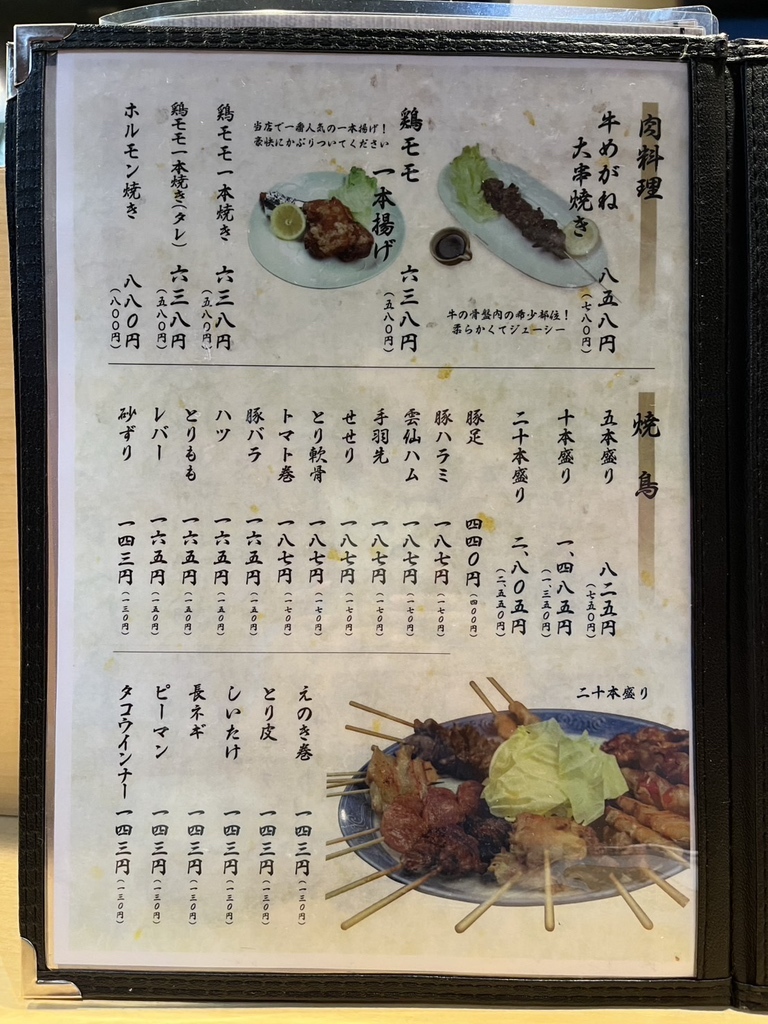 肉料理
牛めがね
大串焼き
八五八円
(七八〇円)
牛の骨盤内の希少部位！
柔らかくてジューシー
鶏モモ
一本揚げ
六三八円
(五八〇円)
当店で一番人気の一本揚げ！
豪快にかぶりついてください
鶏モモ一本焼き 六三八円
(五八〇円)
鶏モモ一本焼き(タレ) 六三八円
(五八〇円)
ホルモン焼き 八八〇円
(八〇〇円)
焼鳥
五本盛り 八二五円
(七五〇円)
十本盛り 一、四八五円
(一、三五〇円)
二十本盛り 二、八〇五円
(二、五五〇円)
豚足 四四〇円(四〇〇円)
豚ハラミ 一八七円(一七〇円)
雲仙ハム 一八七円(一七〇円)
手羽先 一八七円(一七〇円)
せせり 一八七円(一七〇円)
とり軟骨 一八七円(一七〇円)
トマト巻 一八七円(一七〇円)
豚バラ 一六五円(一五〇円)
ハツ 一六五円(一五〇円)
とりもも 一六五円(一五〇円)
レバー 一六五円(一五〇円)
砂ずり 一四三円(一三〇円)
二十本盛り
えのき巻 一四三円(一三〇円)
とり皮 一四三円(一三〇円)
しいたけ 一四三円(一三〇円)
長ネギ 一四三円(一三〇円)
ピーマン 一四三円(一三〇円)
タコウインナー 一四三円(一三〇円)